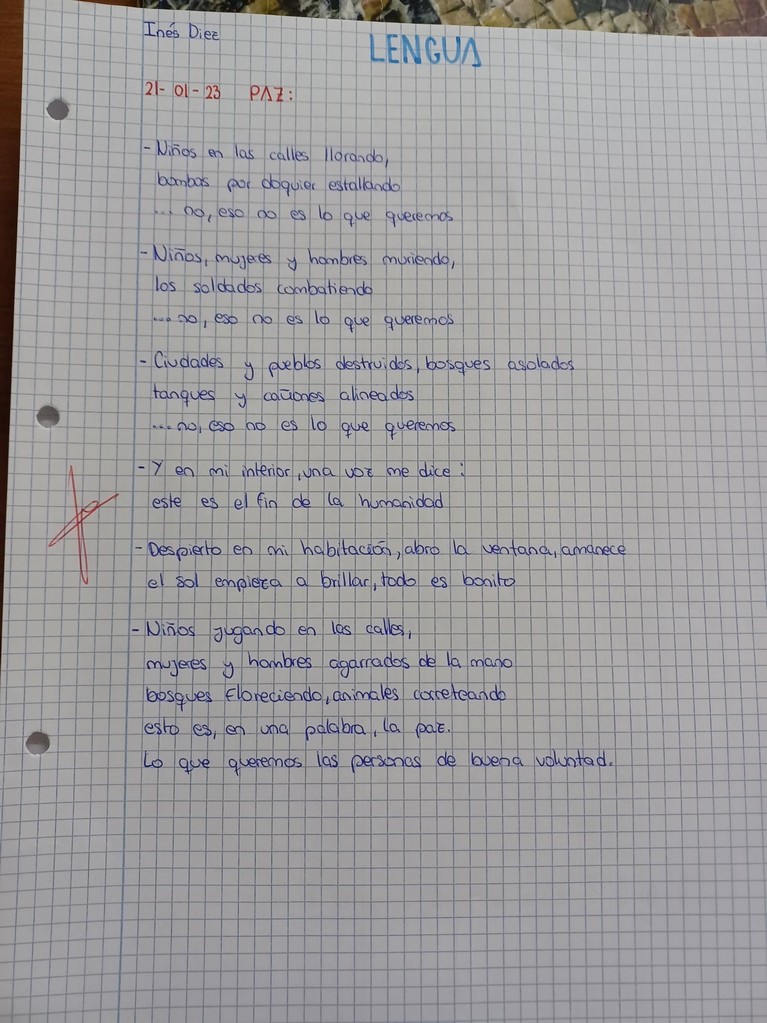 Inés Diez
LENGUA
21-01-23 PAZ:
- Niños en las calles llorando,
bombas por doquier estallando
... no, eso no es lo que queremos
- Niños, mujeres y hombres muriendo,
los soldados combatiendo
... no, eso no es lo que queremos
- Ciudades y pueblos destruidos, bosques asolados
tanques y cañones alineados
... no, eso no es lo que queremos
- Y en mi interior, una voz me dice:
este es el fin de la humanidad
- Despierto en mi habitación, abro la ventana, amanece
el sol empieza a brillar, todo es bonito
- Niños jugando en las calles,
mujeres y hombres agarrados de la mano
bosques floreciendo, animales correteando
esto es, en una palabra, la paz.
Lo que queremos las personas de buena voluntad.